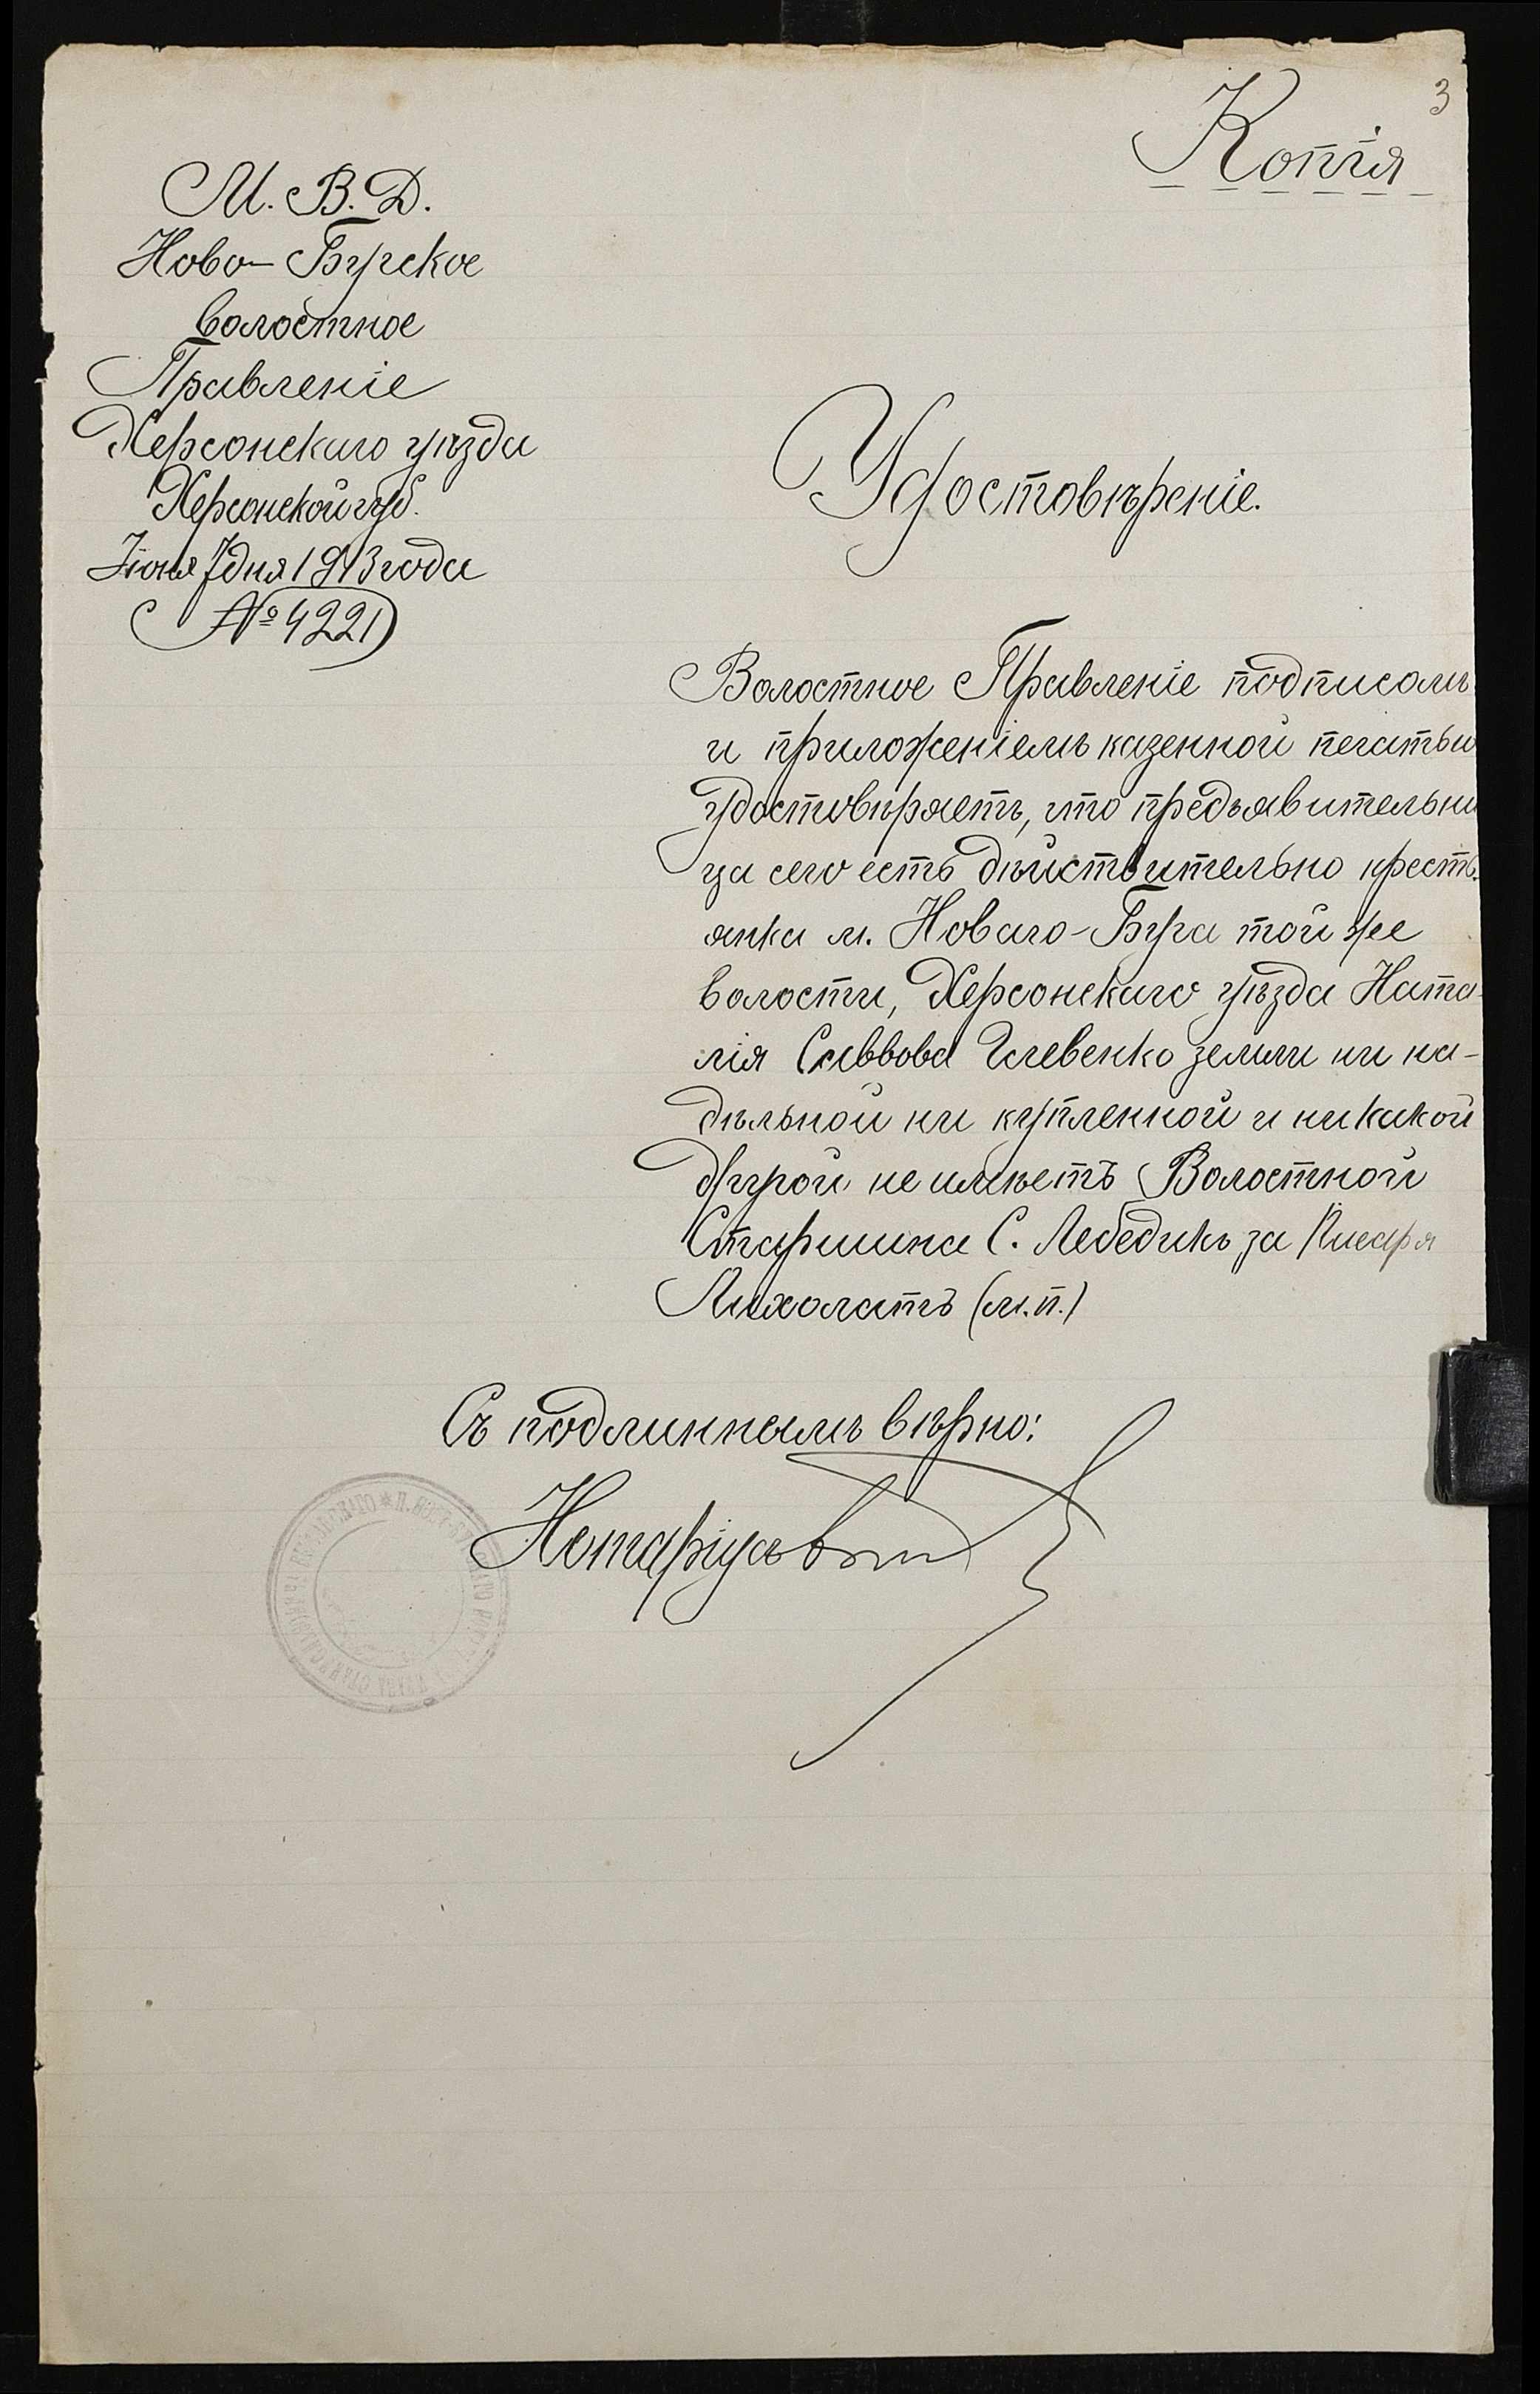 3
Копія
М. В. Д.
Ново-Бугское
волостное
Правленіе
Херсонскаго уѣзда
Херсонской губ.
Іюня 7 дня 1913 года
№ 4221
Удостовѣреніе.
Волостное Правленіе подписомъ
и приложеніемъ казенной печатью
удостовѣряетъ, что предъявительни
ца сего есть дѣйствительно кресть
янка м. Новаго-Буга той же
волости, Херсонскаго уѣзда Ната-
лія Саввова земли ни на-
дѣльной ни купленной и никакой
другой не имѣетъ Волостной
Старшина С. Лебедикъ за Писаря
Лихолатъ (м.п.)
Съ подлиннымъ вѣрно:
Нотаріусъ